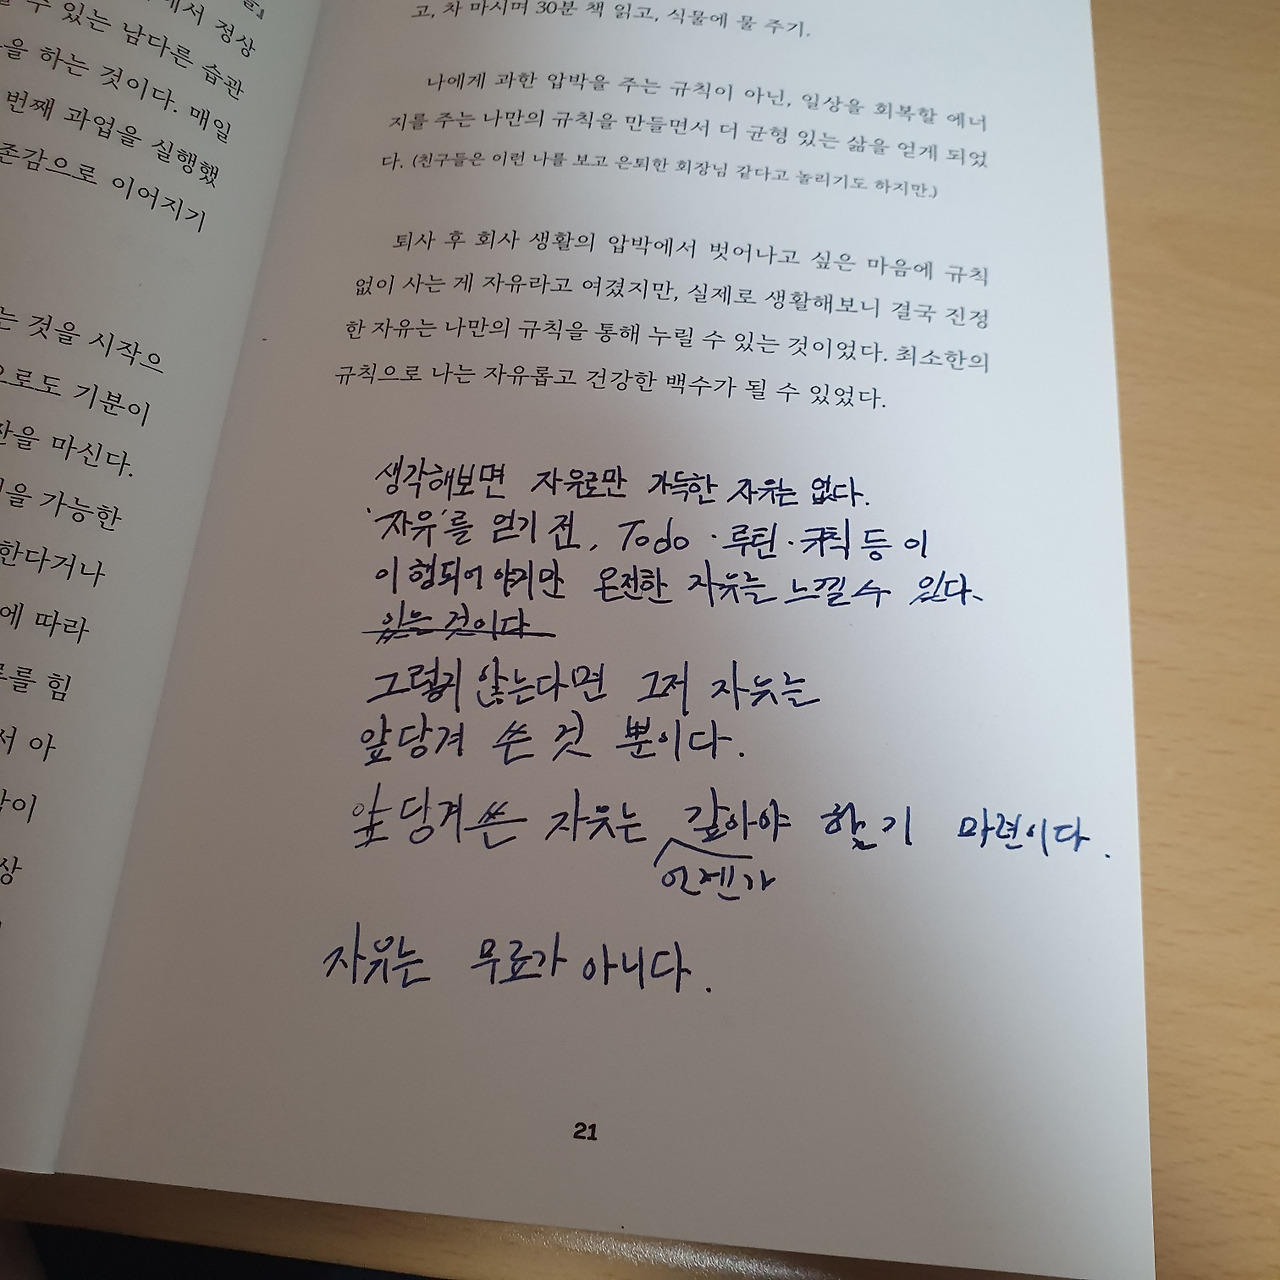 에서 정상
수 있는 남다른 습관
을 하는 것이다. 매일
번째 과업을 실행했
존감으로 이어지기
는 것을 시작으
으로도 기분이
잔을 마신다.
을 가능한
한다거나
에 따라
를 힘
서 아
이
상
고, 차 마시며 30분 책 읽고, 식물에 물 주기.
나에게 과한 압박을 주는 규칙이 아닌, 일상을 회복할 에너
지를 주는 나만의 규칙을 만들면서 더 균형 있는 삶을 얻게 되었
다. (친구들은 이런 나를 보고 은퇴한 회장님 같다고 놀리기도 하지만.)
퇴사 후 회사 생활의 압박에서 벗어나고 싶은 마음에 규칙
없이 사는 게 자유라고 여겼지만, 실제로 생활해보니 결국 진정
한 자유는 나만의 규칙을 통해 누릴 수 있는 것이었다. 최소한의
규칙으로 나는 자유롭고 건강한 백수가 될 수 있었다.
생각해보면 자유로만 가득한 자유는 없다.
'자유'를 얻기 전, Todo·루틴·규칙 등이
이행되어야지만 온전한 자유를 느낄 수 있다.
있는 것이다
그렇지 않는다면 그저 자유를
앞당겨 쓴 것 뿐이다.
앞당겨 쓴 자유는 갚아야 하기 마련이다.
언젠가
자유는 무료가 아니다.
21